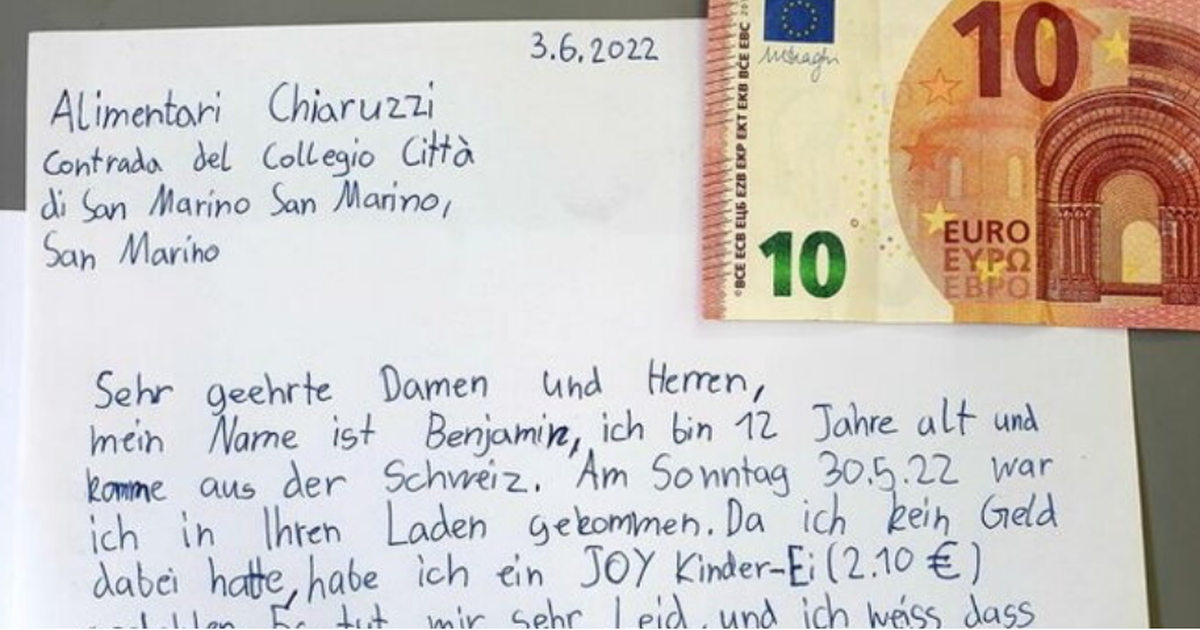 3.6.2022
Alimentari Chiaruzzi
Contrada del Collegio Città
di San Marino San Marino,
San Marino
Sehr geehrte Damen und Herren,
mein Name ist Benjamin, ich bin 12 Jahre alt und
komme aus der Schweiz. Am Sonntag 30.5.22 war
ich in Ihren Laden gekommen. Da ich kein Geld
dabei hatte, habe ich ein JOY Kinder-Ei (2.10 €)
Es tut mir sehr Leid, und ich weiss dass
10
10
EURO
ΕΥΡΩ
ЕВРО
©BCE ECB ЕЦБ EZB EKP EKT EKB BĊE EBC